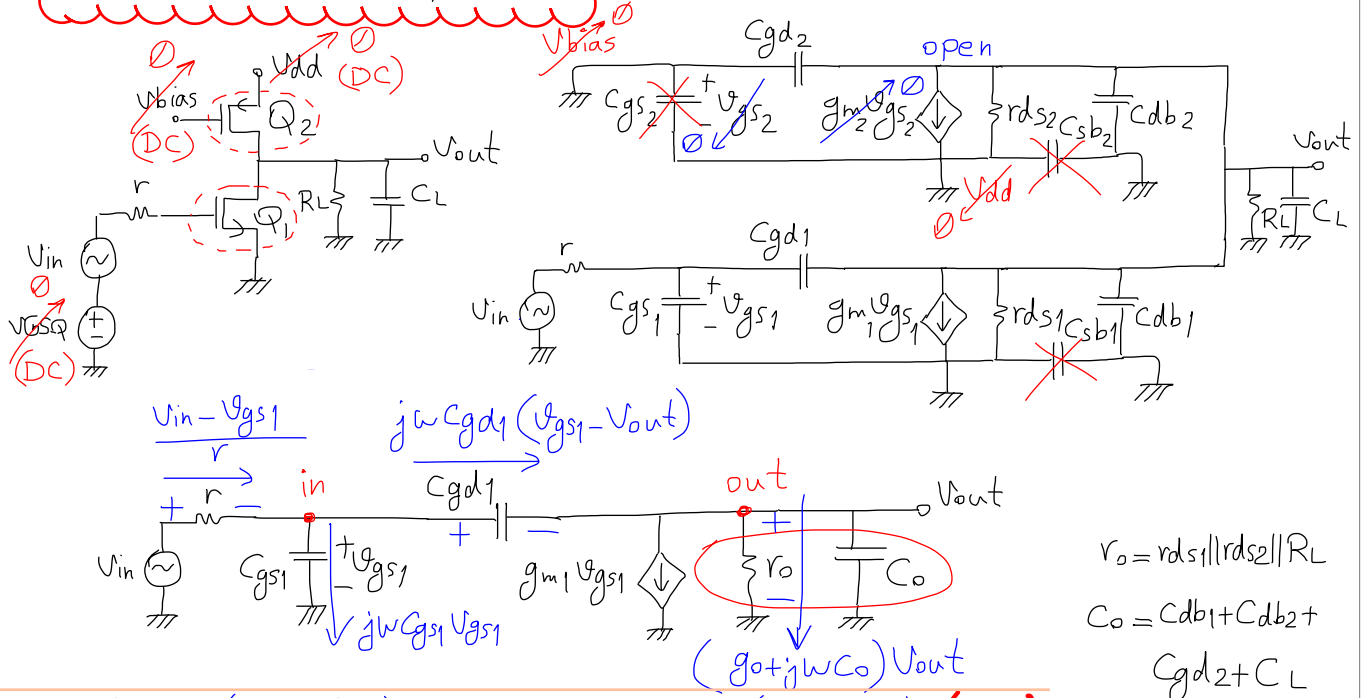 Vbias Ø
Ø
Ø
Vdd (DC)
Vbias
(DC)
Q2
Vout
r
Q1
RL
CL
Vin
Ø
VGSQ
(DC)
Cgd2
open
Cgs2
+
vgs2
-
Ø
gm2vgs2
Ø
rds2
Csb2
Cdb2
Vout
Vdd
Ø
RL
CL
r
Cgd1
Vin
Cgs1
+
vgs1
-
gm1vgs1
rds1
Csb1
Cdb1
Vin-vgs1
r
jwCgd1(vgs1-Vout)
+ r -
in
Cgd1
+ -
out
Vout
Vin
Cgs1
+
vgs1
-
jwCgs1Vgs1
gm1vgs1
+
ro
-
Co
(go+jwCo)Vout
ro=rds1||rds2||RL
Co=Cdb1+Cdb2+
Cgd2+CL